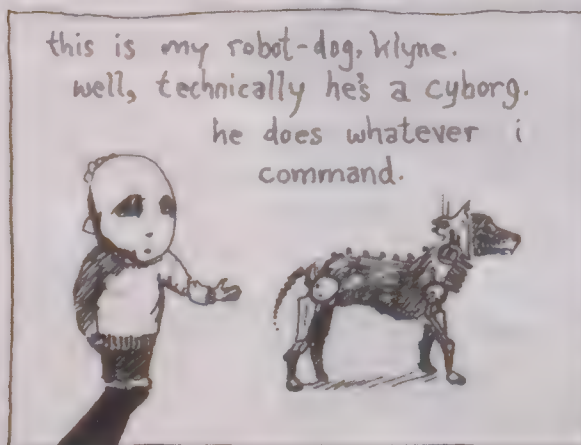 this is my robot-dog, klyne.
well, technically he's a cyborg.
he does whatever i
command.